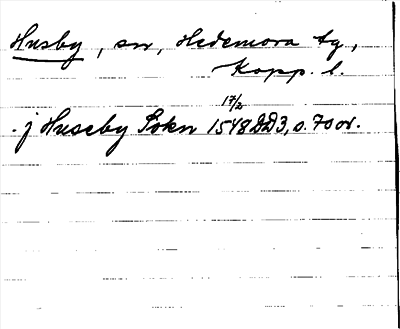 Husby, sn, Hedemora tg,
Kopp. l.
17/2
. j Huseby Sokn 1548 DD3, s. 70 or.